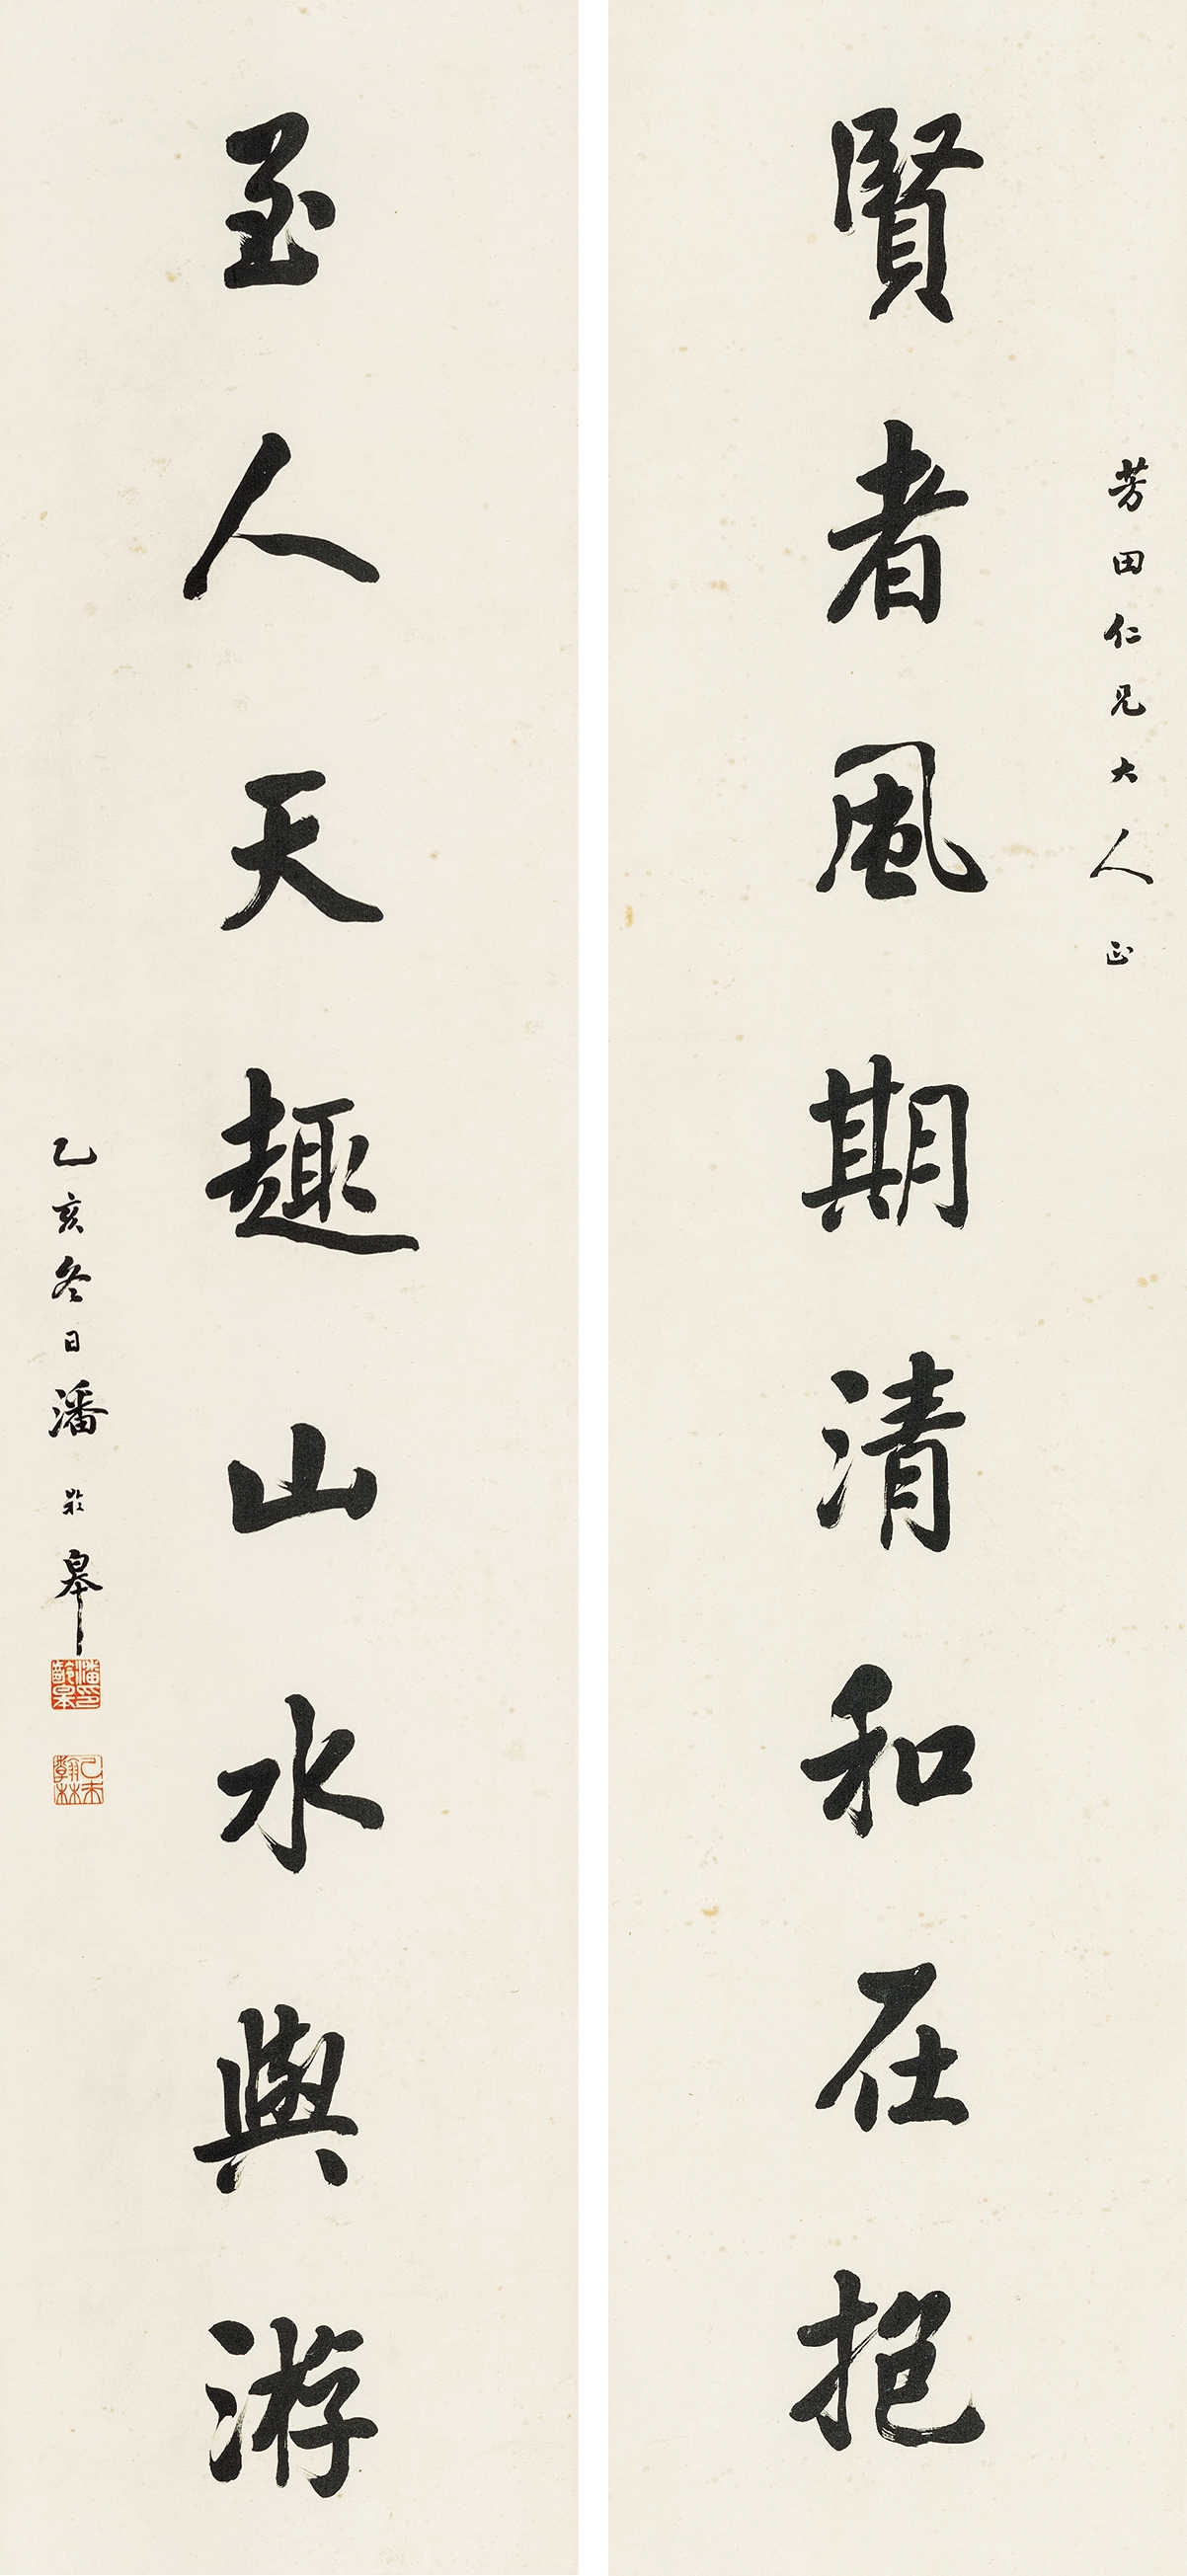 芳田仁兄大人正
賢者風期清和在抱
至人天趣山水與游
乙亥冬日潘齡皋
潘印齡皋
己未翰林